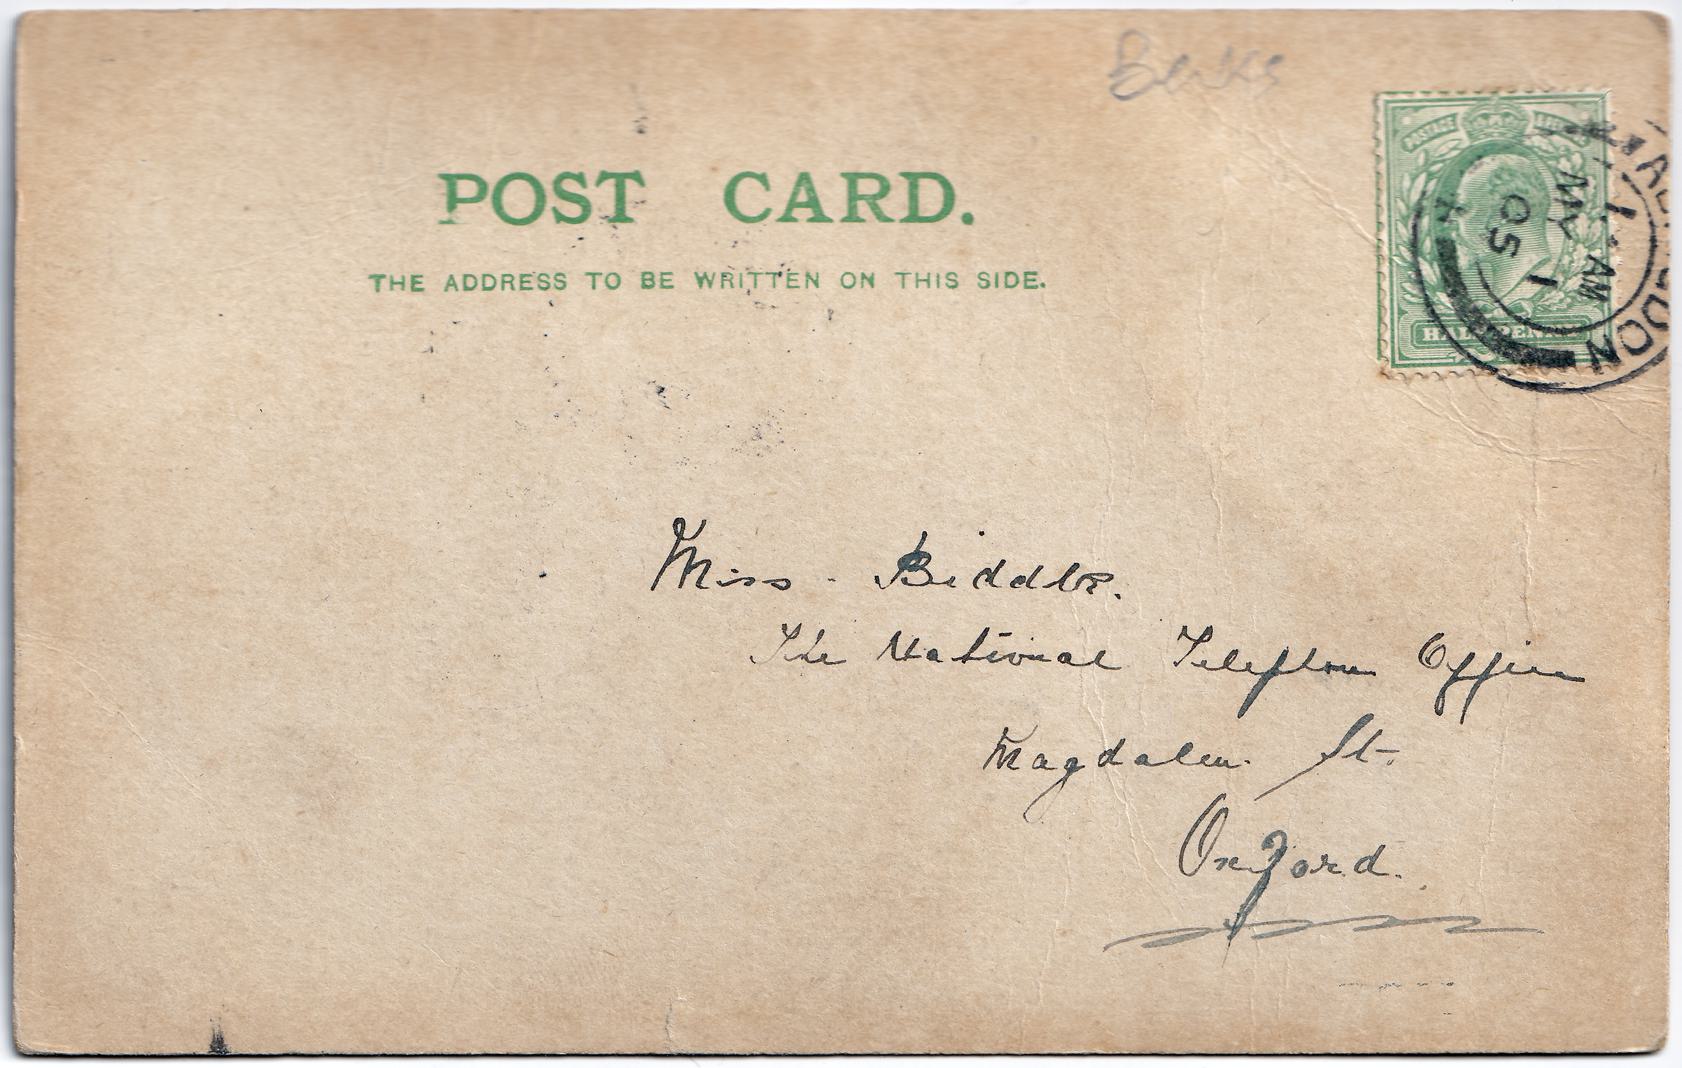 Berks
POST CARD.
THE ADDRESS TO BE WRITTEN ON THIS SIDE.
POSTAGE
HALFPENNY
ABINGDON
AM
MY 1
05
Miss Biddle.
The National Telephone Office
Magdalen St.
Oxford.